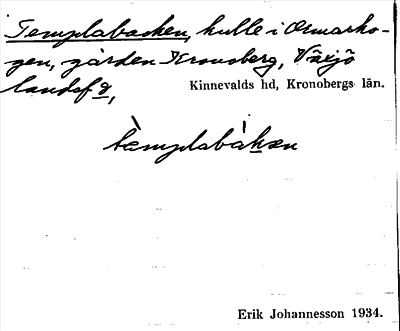 Templabacken, kulle i Ormasko-
gen, gården Kronoberg, Växjö
landsf d,
Kinnevalds hd, Kronobergs län.
tèmplabákæn
Erik Johannesson 1934.